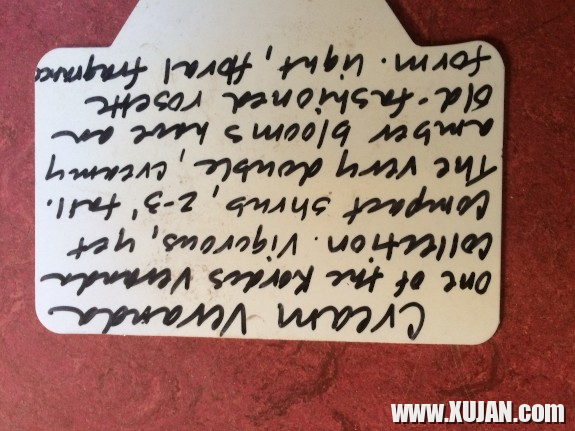 Cream Veranda
One of the Kordes Veranda
Collection. Vigorous, yet
compact shrub, 2-3' tall.
The very double, creamy
amber blooms have an
old-fashioned rosette
form. Light, floral fragrance
www.XUJAN.com